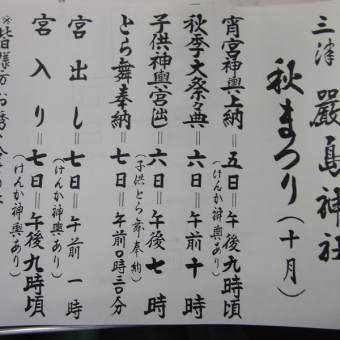 三津 厳島神社
秋まつり(十月)
宵宮神輿上納=五日=午後九時頃
(けんか神輿あり)
秋季大祭典=六日=午前十時
子供神輿宮出=六日=午後七時
(子供とら舞奉納)
とら舞奉納=七日=午前0時三〇分
宮出し=七日=午前一時
(けんか神輿あり)
宮入り=七日=午後九時頃
(けんか神輿あり)
※皆様方お誘い